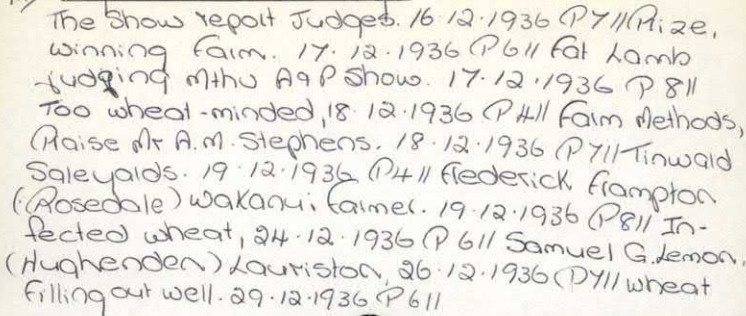 The Show report Judges. 16.12.1936 (P7// Prize,
winning Farm. 17.12.1936 (P6// Fat Lamb
judging Mthu A&P Show. 17.12.1936 (P8//
Too wheat-minded, 18.12.1936 (P4// Farm Methods,
Praise Mr A.M. Stephens. 18.12.1936 (P7// Tinwald
Saleyards. 19.12.1936 (P4// Frederick Frampton
(Rosedale) Wakanui Farmer. 19.12.1936 (P8// In-
fected wheat, 24.12.1936 (P6// Samuel G. Lemon.
(Hughenden) Lauriston, 26.12.1936 (P7// wheat
filling out well. 29.12.1936 (P6//